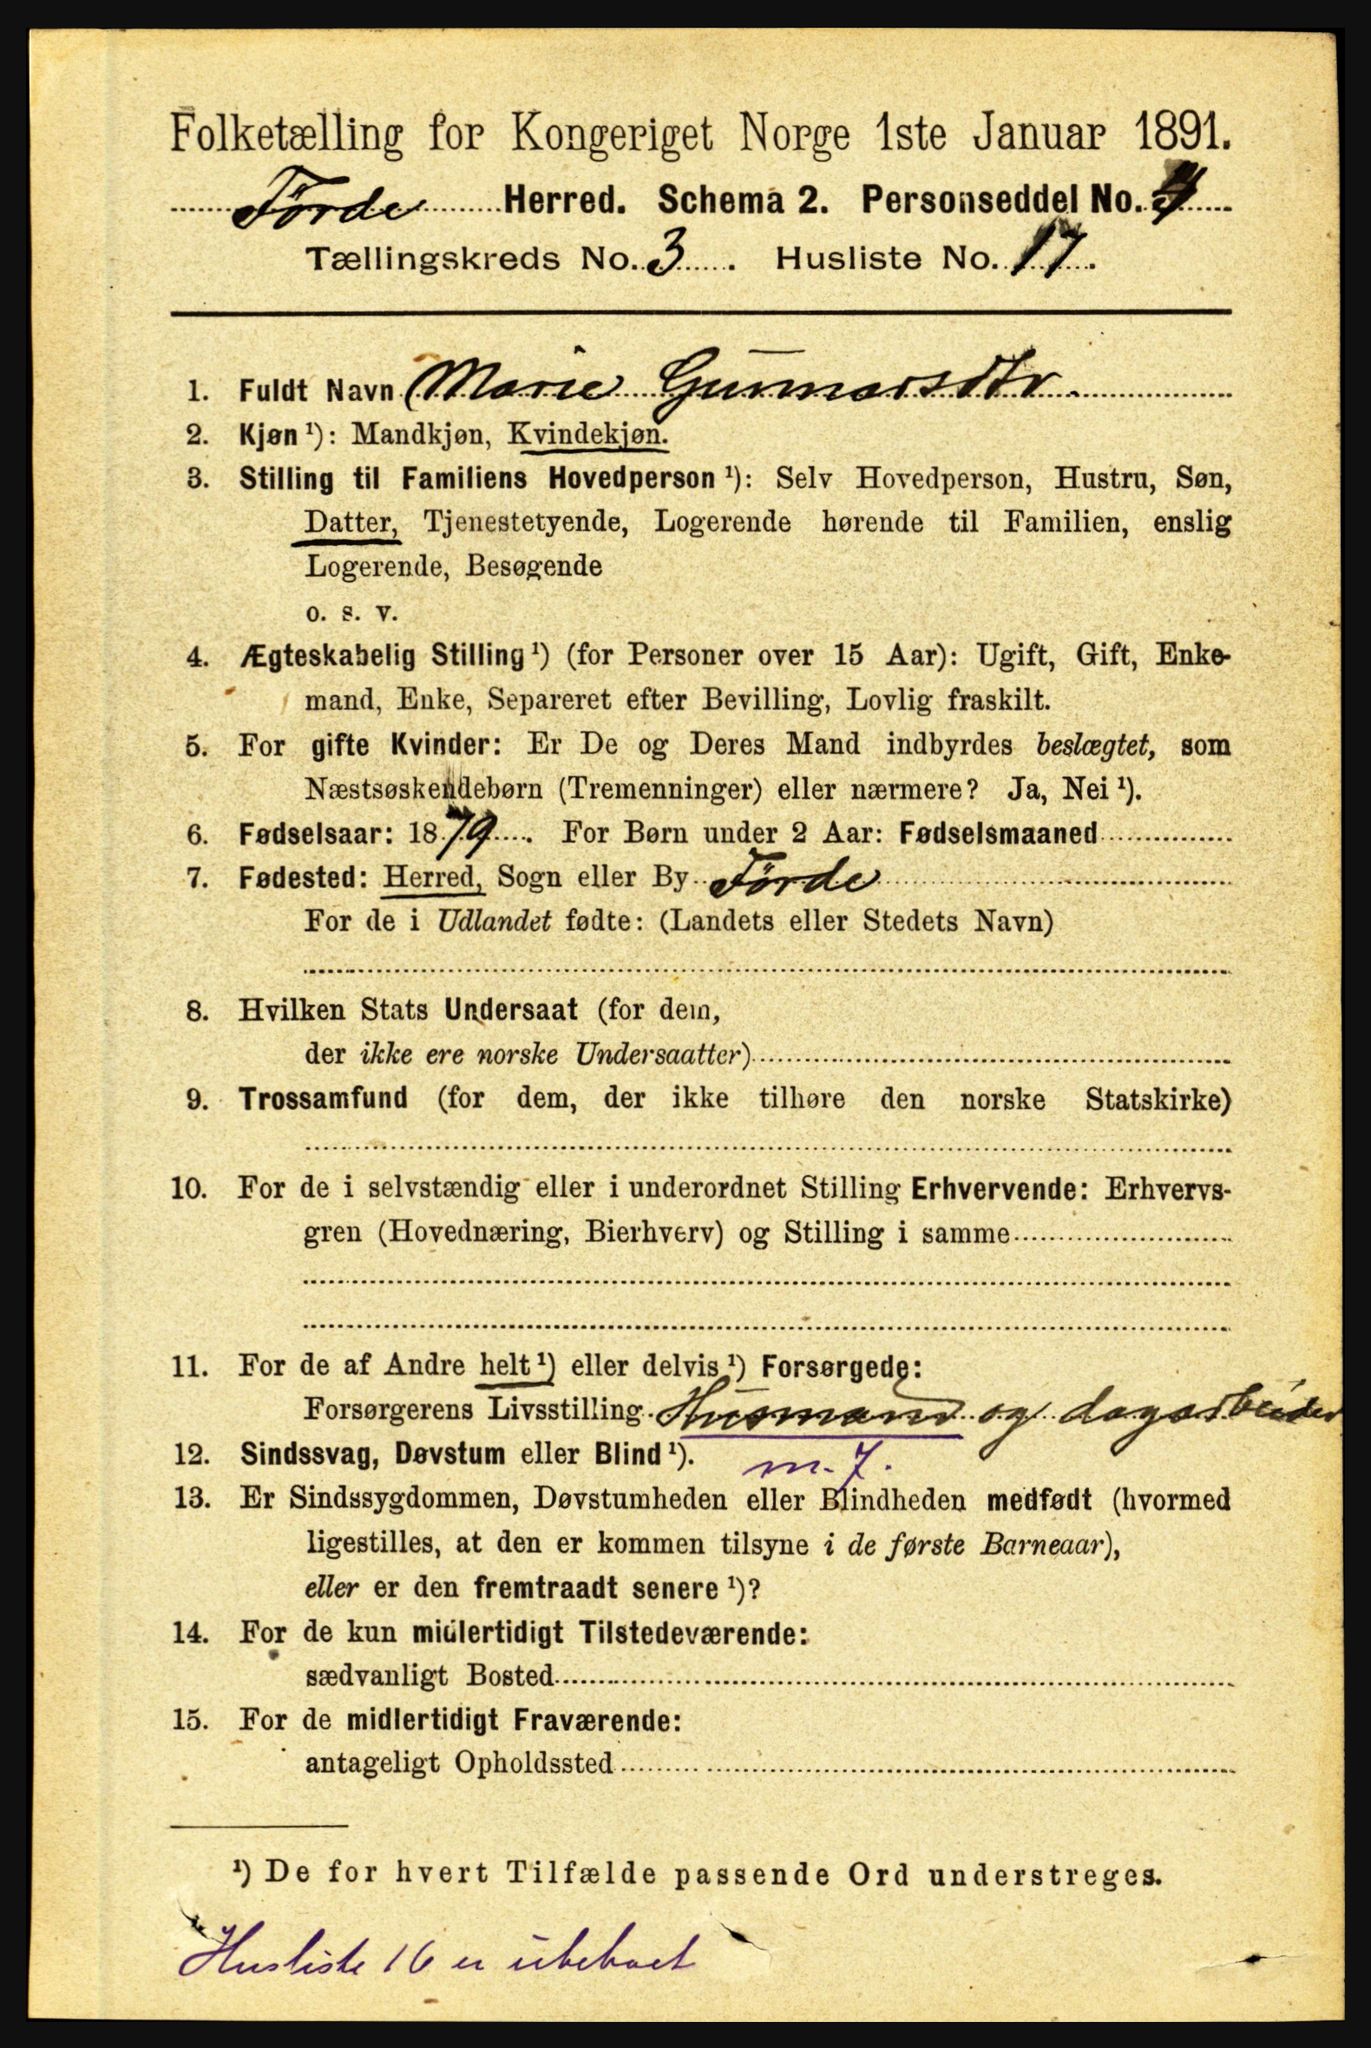 Folketælling for Kongeriget Norge 1ste Januar 1891.
Førde Herred. Schema 2. Personseddel No.
Tællingskreds No. 3. Husliste No. 17.
1. Fuldt Navn Marie Gunnarsdtr.
2. Kjøn ¹): Mandkjøn, Kvindekjøn.
3. Stilling til Familiens Hovedperson ¹): Selv Hovedperson, Hustru, Søn,
Datter, Tjenestetyende, Logerende hørende til Familien, enslig
Logerende, Besøgende
o. s. v.
4. Ægteskabelig Stilling ¹) (for Personer over 15 Aar): Ugift, Gift, Enke-
mand, Enke, Separeret efter Bevilling, Lovlig fraskilt.
5. For gifte Kvinder: Er De og Deres Mand indbyrdes beslægtet, som
Næstsøskendebørn (Tremenninger) eller nærmere? Ja, Nei ¹).
6. Fødselsaar: 1879. For Børn under 2 Aar: Fødselsmaaned
7. Fødested: Herred, Sogn eller By Førde
For de i Udlandet fødte: (Landets eller Stedets Navn)
8. Hvilken Stats Undersaat (for dem,
der ikke ere norske Undersaatter)
9. Trossamfund (for dem, der ikke tilhøre den norske Statskirke)
10. For de i selvstændig eller i underordnet Stilling Erhvervende: Erhvervs-
gren (Hovednæring, Bierhverv) og Stilling i samme
11. For de af Andre helt ¹) eller delvis ¹) Forsørgede:
Forsørgerens Livsstilling Husmand og dagarbeider
12. Sindssvag, Døvstum eller Blind ¹). m. 7.
13. Er Sindssygdommen, Døvstumheden eller Blindheden medfødt (hvormed
ligestilles, at den er kommen tilsyne i de første Barneaar),
eller er den fremtraadt senere ¹)?
14. For de kun midlertidigt Tilstedeværende:
sædvanligt Bosted
15. For de midlertidigt Fraværende:
antageligt Opholdssted
¹) De for hvert Tilfælde passende Ord understreges.
Husliste 16 er ubeboet